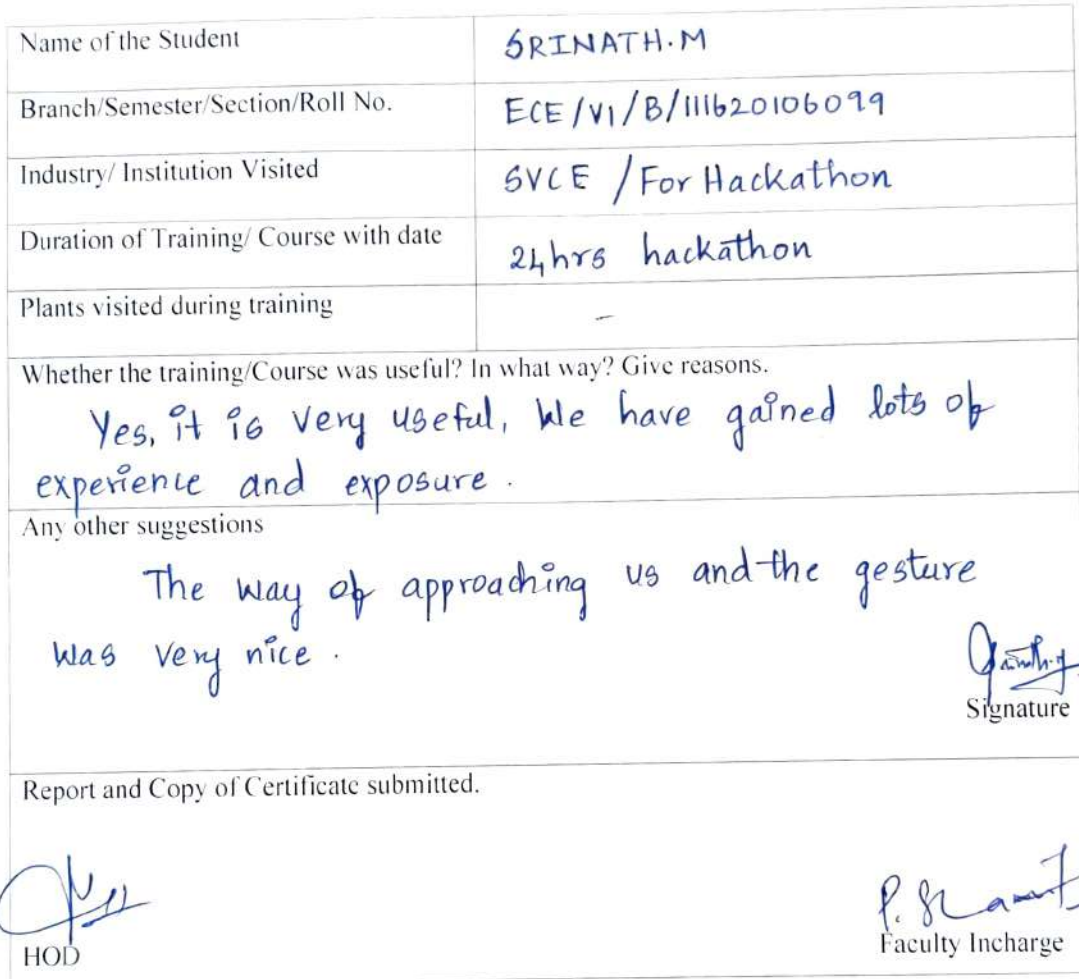 Name of the Student SRINATH.M
Branch/Semester/Section/Roll No. ECE/VI/B/111620106099
Industry/ Institution Visited SVCE / For Hackathon
Duration of Training/ Course with date 24hrs hackathon
Plants visited during training –
Whether the training/Course was useful? In what way? Give reasons.
Yes, it is very useful, We have gained lots of
experience and exposure.
Any other suggestions
The way of approaching us and the gesture
was very nice.
Signature
Report and Copy of Certificate submitted.
HOD
Faculty Incharge